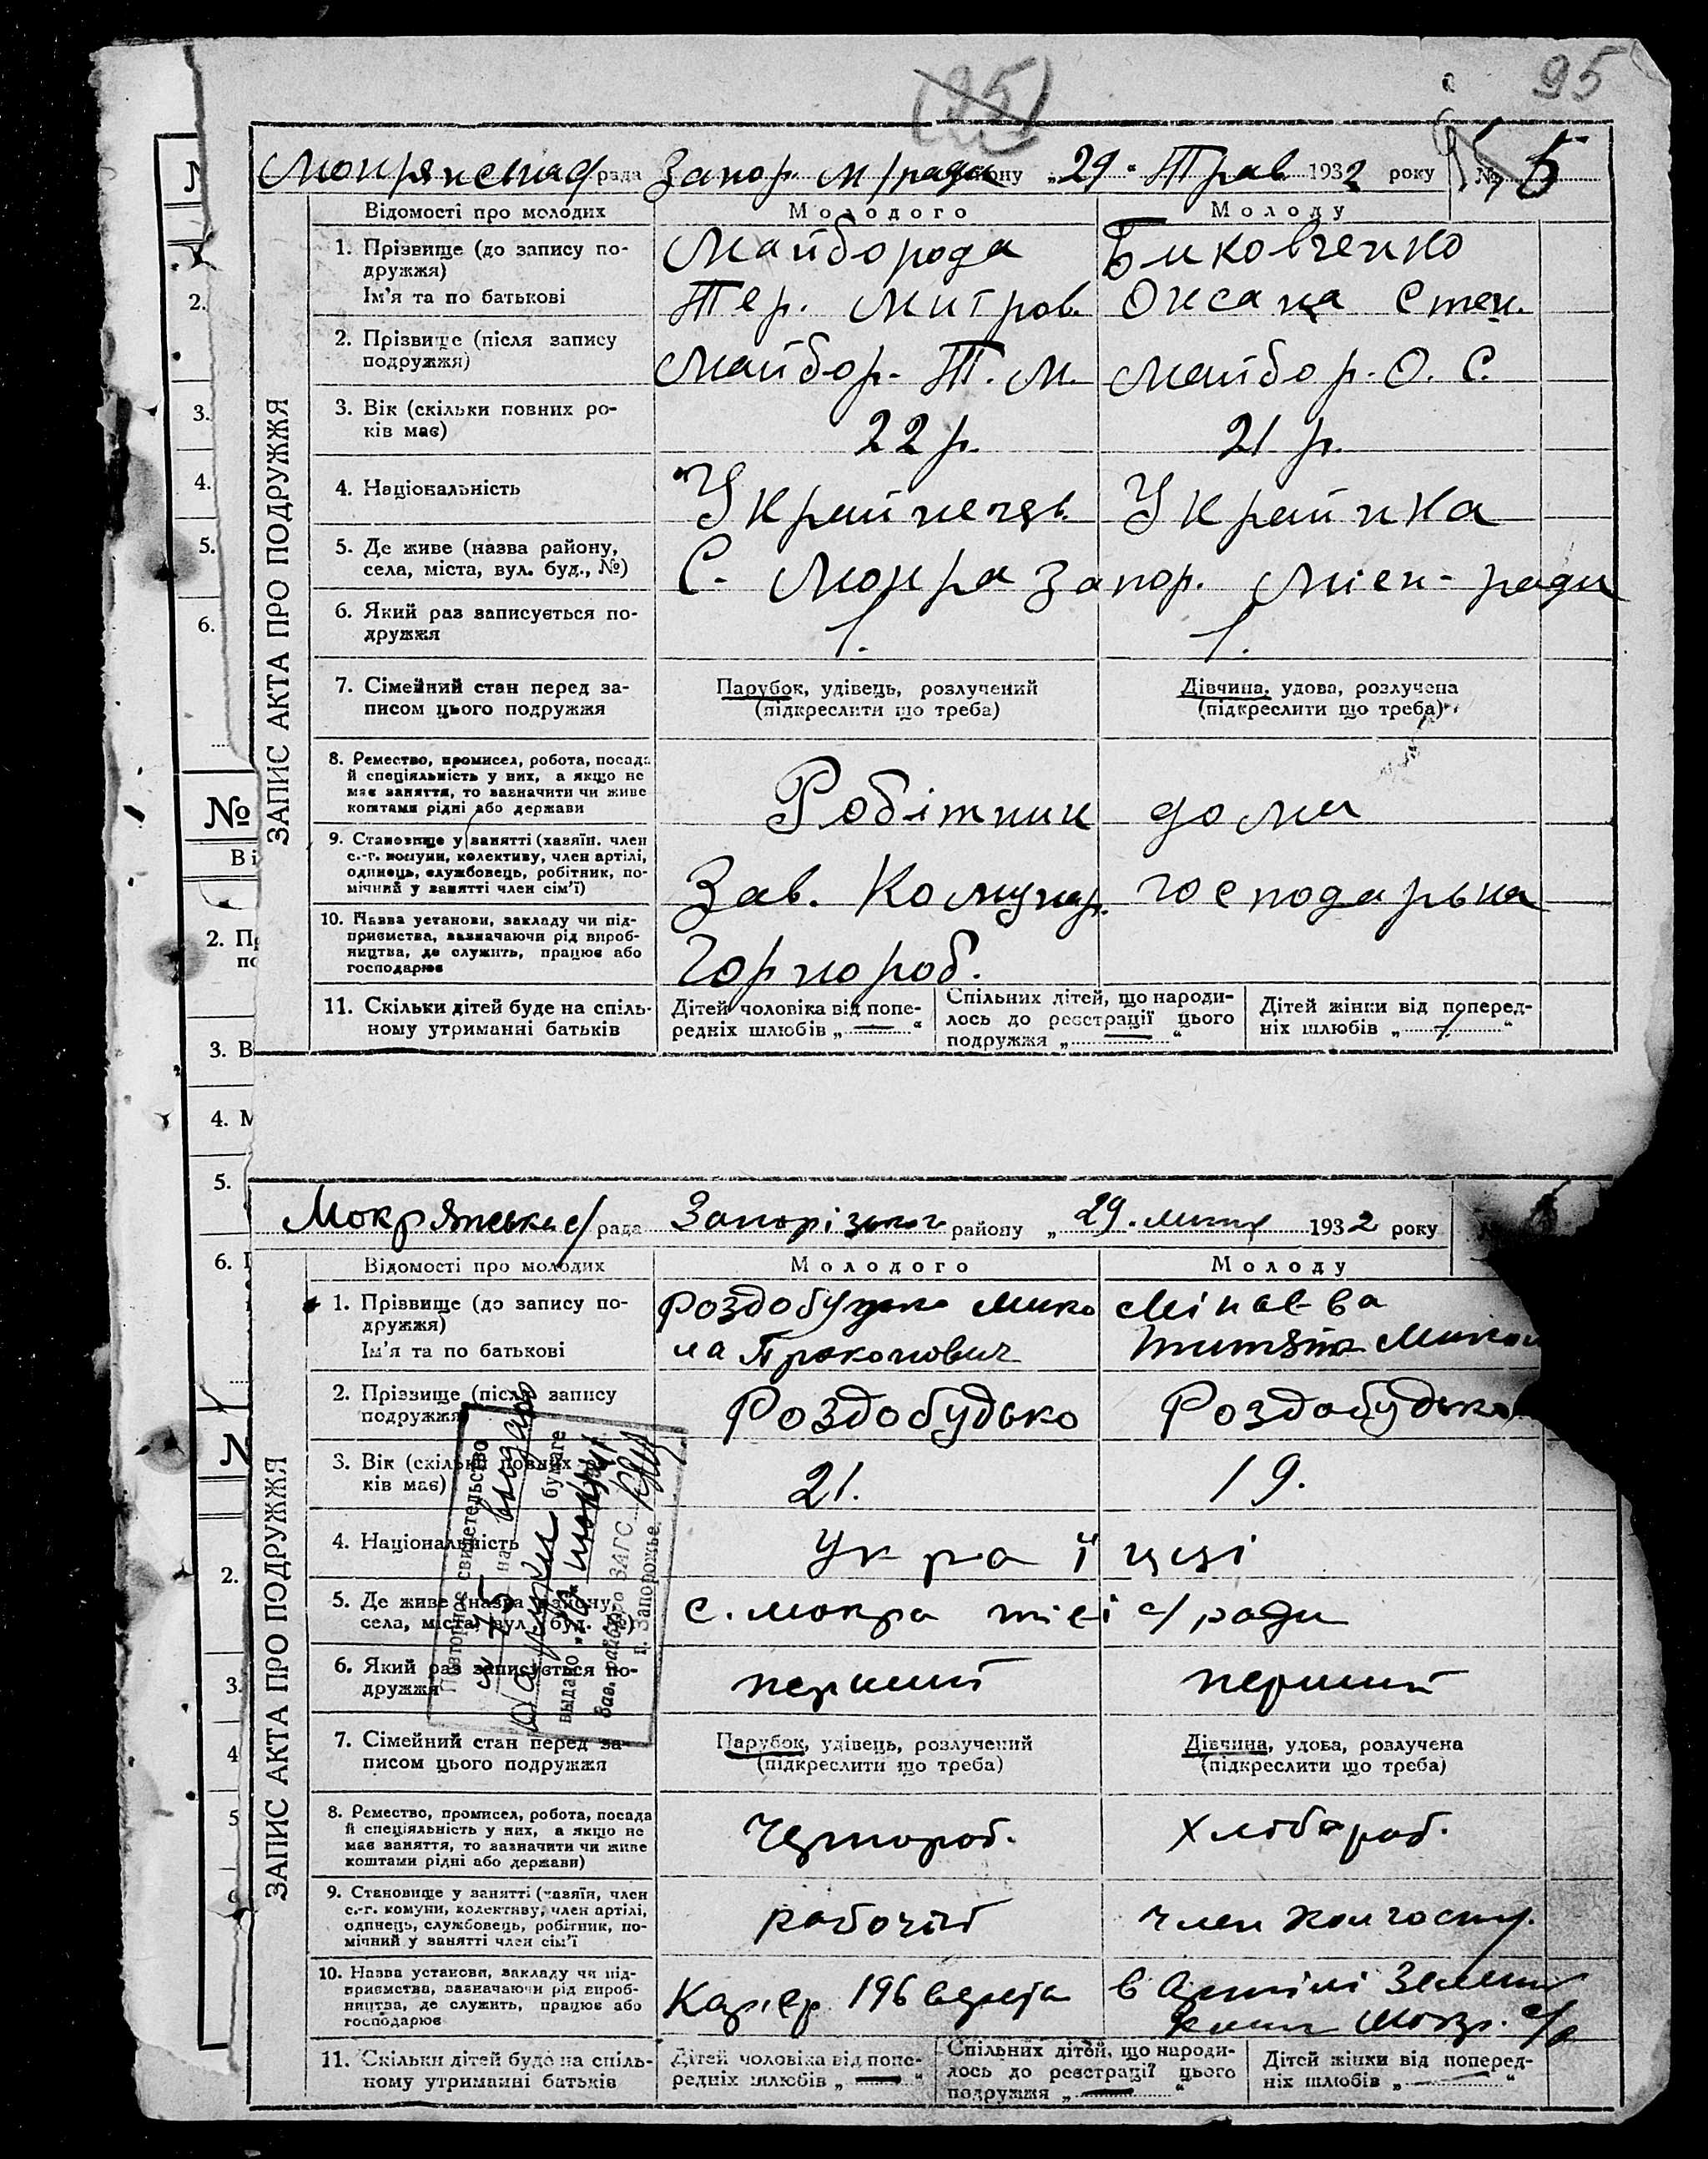 95
(95)
Мокрянська с/рада Запор. м/рада району „29" Трав 1932 року № 5
Відомості про молодих Молодого Молоду
ЗАПИС АКТА ПРО ПОДРУЖЖЯ
1. Прізвище (до запису по-
дружжя)
Ім'я та по батькові
Майборода Биковченко
Тер. Митров. Оксана Степ.
2. Прізвище (після запису
подружжя)
Майбор. Т. М. Майбор. О. С.
3. Вік (скільки повних ро-
ків має)
22 р. 21 р.
4. Національність
Украйнець Украйнка
5. Де живе (назва району,
села, міста, вул. буд., №)
С. Мокра Запор. Міск-ради
6. Який раз записується по-
дружжя
1. 1.
7. Сімейний стан перед за-
писом цього подружжя
Парубок, удівець, розлучений
(підкреслити що треба)
Дівчина, удова, розлучена
(підкреслити що треба)
8. Ремество, промисел, робота, посада
й спеціяльність у них, а якщо не
має заняття, то зазначити чи живе
коштами рідні або держави
Робітник дома
9. Становище у занятті (хазяїн. член
с.-г. комуни, колективу, член артілі,
одинець, службовець, робітник, по-
мічний у занятті член сім'ї)
Зав. Комунар. господарька
10. Назва установи, закладу чи під-
приємства, зазначаючи рід вироб-
ництва, де служить, працює або
господарює
Чорнороб.
11. Скільки дітей буде на спіль-
ному утриманні батьків
Дітей чоловіка від попе-
редніх шлюбів „ — "
Спільних дітей, що народи-
лось до реєстрації цього
подружжя „ — "
Дітей жінки від поперед-
ніх шлюбів „ — "
Мокрянська с/рада Запорізького району „29. липня 1932 року
Відомості про молодих Молодого Молоду
ЗАПИС АКТА ПРО ПОДРУЖЖЯ
1. Прізвище (до запису по-
дружжя)
Ім'я та по батькові
Роздобудько Мико
ла Прокопович
Мінаєва
2. Прізвище (після запису
подружжя)
Роздобудько Роздобудько
3. Вік (скільки повних ро-
ків має)
21. 19.
4. Національність
Українці
5. Де живе (назва району,
села, міста, вул. буд. №)
с. Мокра тієї с/ради
6. Який раз записується по-
дружжя
перший перший
7. Сімейний стан перед за-
писом цього подружжя
Парубок, удівець, розлучений
(підкреслити що треба)
Дівчина, удова, розлучена
(підкреслити що треба)
8. Ремество, промисел, робота, посада
й спеціяльність у них, а якщо не
має заняття, то зазначити чи живе
коштами рідні або держави)
Чорнороб. Хлібороб.
9. Становище у занятті (хазяїн, член
с.-г. комуни, колективу, член артілі,
одинець, службовець, робітник, по-
мічний у занятті член сім'ї
рабочій член колгоспу.
10. Назва установи, закладу чи під-
приємства, зазначаючи рід вироб-
ництва, де служить, працює або
господарює
Кар'єр 196 в Артілі
Мокр. с/р
11. Скільки дітей буде на спіль-
ному утриманні батьків
Дітей чоловіка від попе-
редніх шлюбів „ — "
Спільних дітей, що народи-
лось до реєстрації цього
подружжя „ — "
Дітей жінки від поперед-
ніх шлюбів „ — "
Повторное свидетельство
на
бумаге
выдано
Зав. райбюро ЗАГС
г. Запорожье
№
Ві
2.
3.
4.
5.
6.